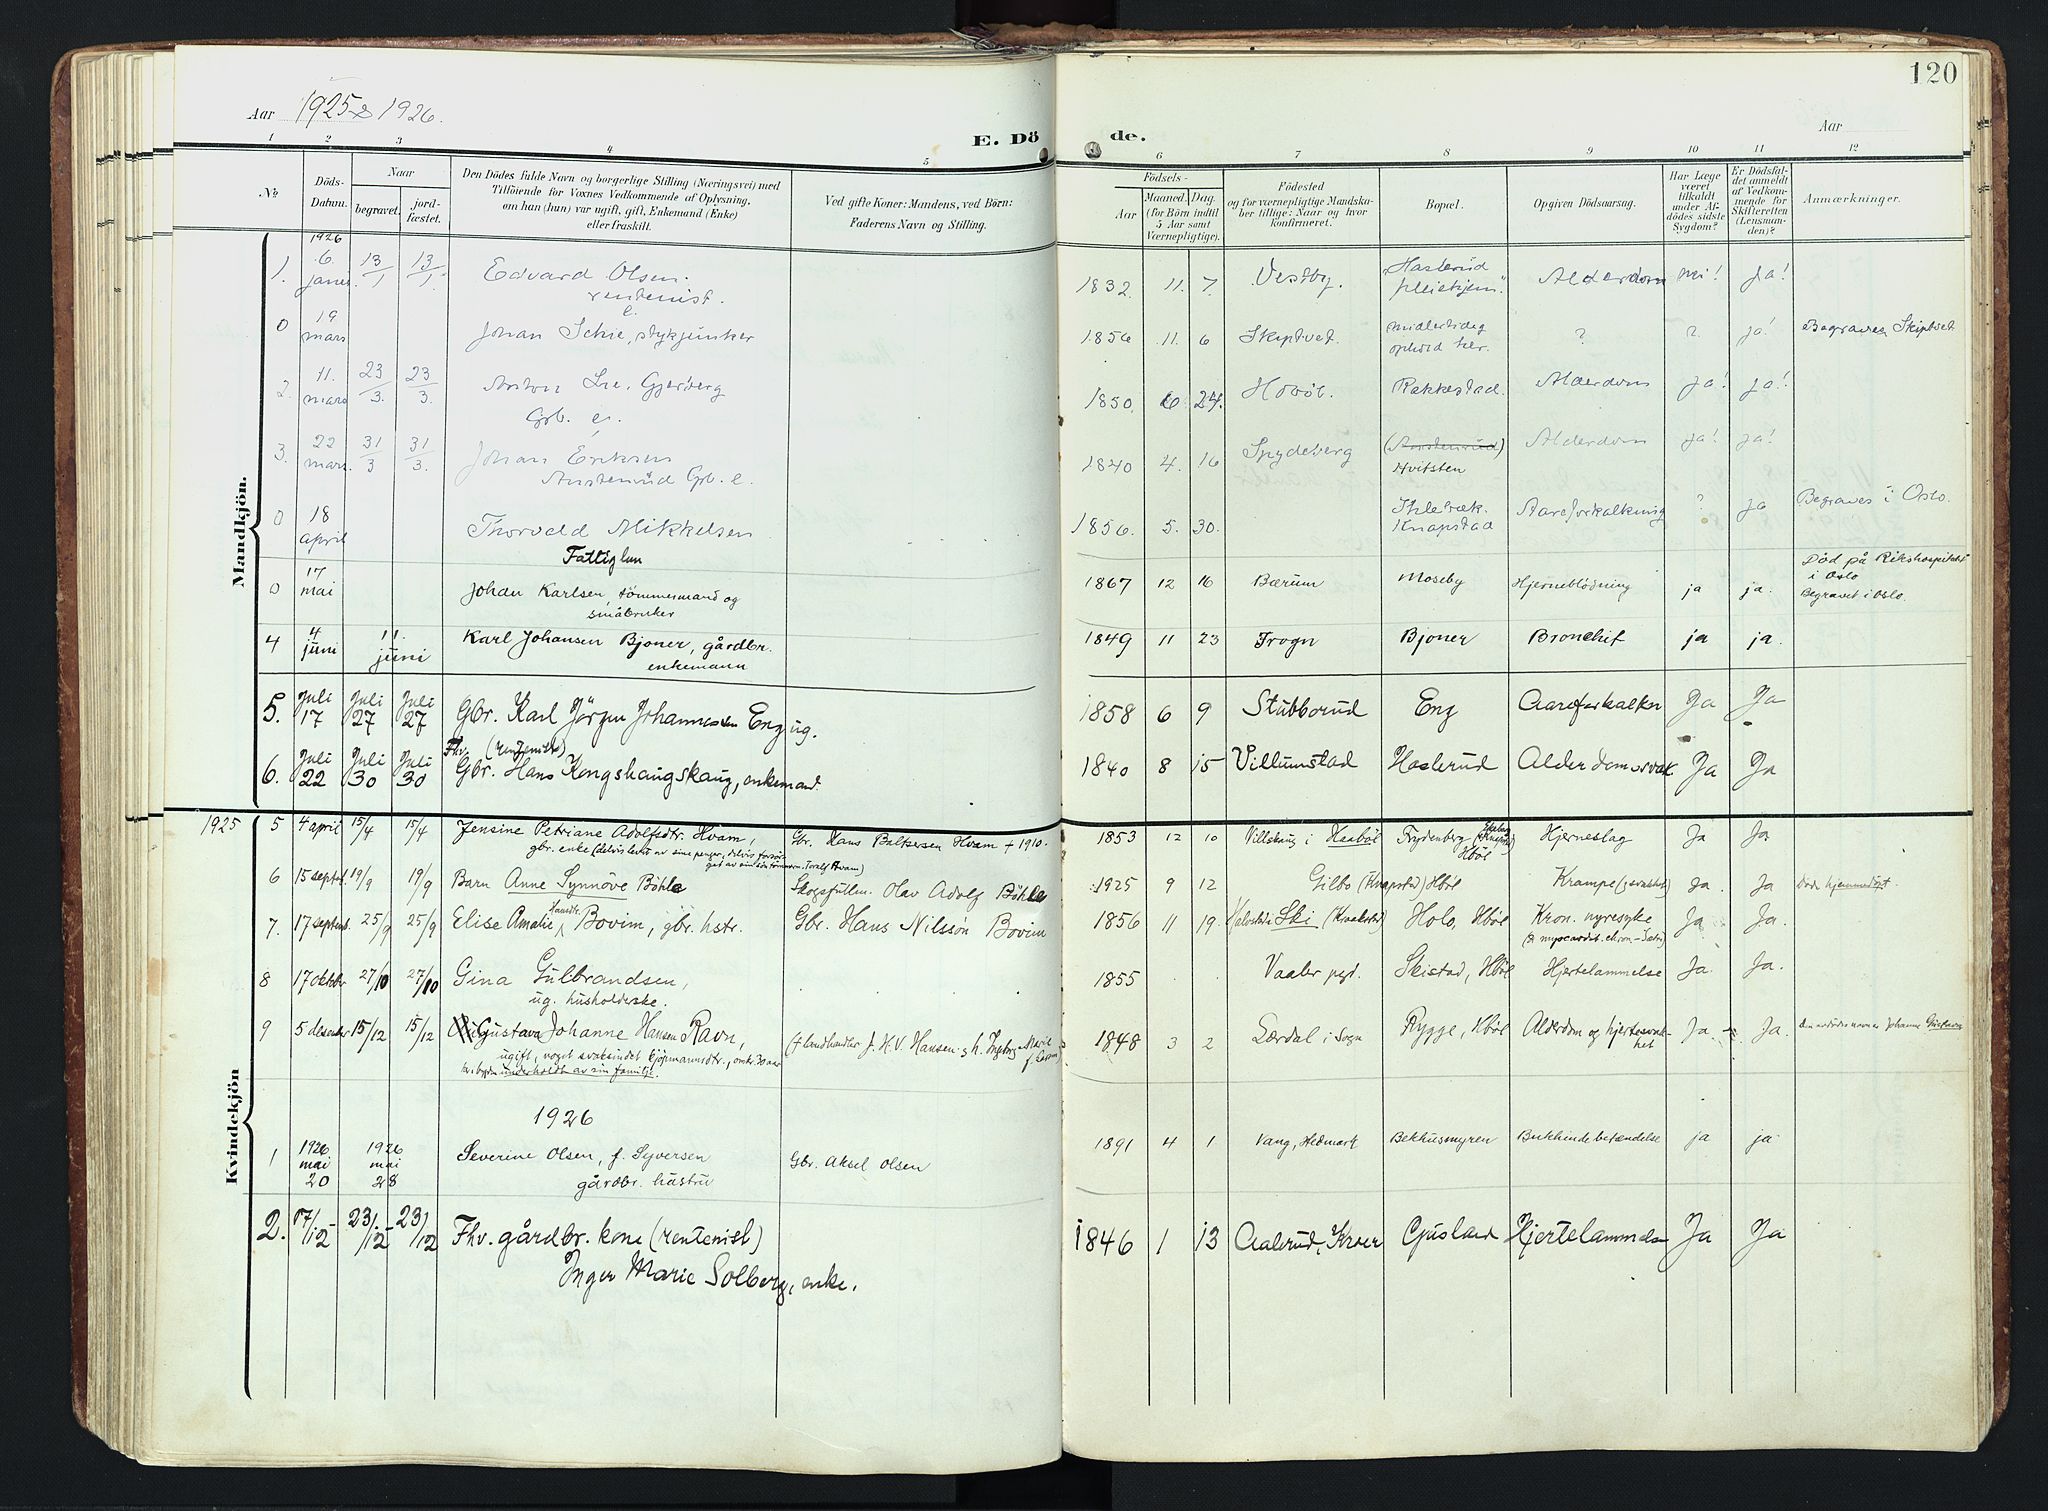 120
Aar 1925 & 1926.
E. Dö de.
Aar
1 2 3 4 5 6 7 8 9 10 11 12
No.
Döds-Datum.
Naar
begravet.
jord-fæstet.
Den Dödes fulde Navn og borgerlige Stilling (Næringsvei) med
Tilföiende for Voxnes Vedkommende af Oplysning,
om han (hun) var ugift, gift, Enkemand (Enke)
eller fraskilt.
Ved gifte Koner: Mandens, ved Börn:
Faderens Navn og Stilling.
Födsels-
Aar
Maaned. Dag.
(for Börn indtil
5 Aar samt
Værnepligtige).
Födested
og for værnepligtige Mandska-
ber tillige: Naar og hvor
konfirmeret.
Bopæl.
Opgiven Dödsaarsag.
Har Læge
været
tilkaldt
under Af-
dödes sidste
Sygdom?
Er Dödsfal-
det anmeldt
af Vedkom-
mende for
Skifteretten
(Lensman-
den)?
Anmærkninger.
Mandkjön.
1926
1. 6. januar 13/1 13/1. Edvard Olsen. 1832. 11. 7. Vestby. Hasterud Alderdom nei! Ja!
rentenist. e. pleiehjem.
0 19 mars Johan Schie, stykjunker 1856 11. 6 Skiptvet. midlertidig ? ? ja! Begraves Skiptvet
ophold her.
2. 11. mars 23/3. 23/3. Anton Lie, Gjersberg 1850. 6 24. Hobøl. Rakkestad. Alderdom ja! ja!
Grb. e.
3. 22 mars. 31/3 31/3. Johan Eriksen 1840 4. 16 Spydeberg (Anstenrud) Alderdom ja! ja!
Anstenrud Grb. e. Hvitsten
0 18 april Thorvald Mikkelsen 1856. 5. 30. Ihlebæk. Aareforkalkning ? ja Begraves i Oslo.
Fattiglem Knapstad
0 17 mai Johan Karlsen tømmermand og 1867 12 16 Bærum Moseby Hjerneblødning ja ja. Død på Rikshospitalet
småbruker i Oslo
Begravet i Oslo.
4 4 juni 11. juni Karl Johansen Bjoner, gårdbr. 1849 11 23 Frogn Bjoner Bronchit ja ja.
enkemann
5. Juli 17 Juli 27 Juli 27 Gbr. Karl Jörgen Johannessen Eng ug. 1858 6 9 Stubberud Eng Aareforkalkn Ja Ja
Fhv. (rentenist)
6. Juli 22 Juli 30 Juli 30 Gbr. Hans Kongshaugskaug, enkemand. 1840 8 15 Villumstad Haslerud Alderdomssvak. Ja Ja
Kvindekjön
1925 5 4 april 15/4 15/4 Jensine Petriane Adolfsdtr. Hvam, Gbr. Hans Baltzersen Hvam + 1910. 1853 12 10 Villskug i Haabøl Frydenberg Hjerneslag Ja Ja.
gbr. enke (delvis levet av sine penger, delvis forsør- Hbøl
get av sin sön Toralf Hvam)
6 15 septbr. 19/9 19/9 Barn Anne Synnöve Böhle Skogsfullm. Olav Adolf Böhle 1925 9 12 Gilbo (Knapstad) Hbøl Krampe Ja. Ja Døde hjemmedöpt.
7. 17 septemb. 25/9 25/9 Elise Amalie Hansdtr. Bovim, gbr. hstr. Gbr. Hans Nilssön Bovim 1856 11 19. Ski (Kraakstad) Holo, Hbøl Kron. nyresyke Ja Ja.
8 17 oktobr 27/10 27/10 Gina Gulbrandsen, 1855 . . Vaaler pgd. Skistad, Hbøl Hjertelammelse Ja. Ja.
ug. husholderske.
9 5 desember 15/12 15/12 Gustava Johanne Hansen Ravn, (+ landhandler J. H. V. Hansen og h. Ingeborg Marie 1848 3 2 Lærdal i Sogn Rygge, Hbøl Alderdom og hjertesvak- Ja. Ja. Den avdødes navn er Johanne Gustava
ugift, noget svaksindet kjöpmannsdtr., omtr. 30 aar het
her i bygden underholdt av sin familje.
1926
1 1926 mai 20 1926 mai 28 Severine Olsen, f. Syversen Gbr. Aksel Olsen 1891 4 1 Vang, Hedmark Bekkhusmyren Bukhindebetændelse ja ja
gårdbr. hustru
2. 17/12 23/12 23/12 Fhv. gårdbr. kone (rentenist) 1846 1 13 Aalerud, Kroer Gjusland Hjertelammelse Ja Ja
Inger Marie Solberg, enke.